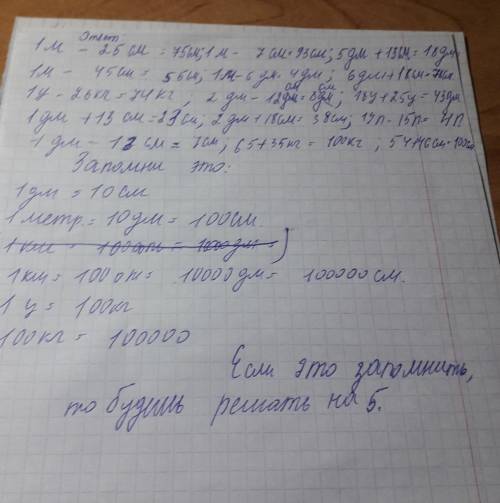 Ответ
1м - 25см = 75см; 1м - 7см = 93см; 5дм + 13дм = 18дм
1м - 45см = 56см, 1м - 6дм = 4дм; 6дм + 18см = 78см
1ц - 26кг = 74кг; 2дм - 12см = 8см; 18ц + 25ц = 43
1дм + 13см = 23см; 2дм + 18см = 38см; 17п - 15п = 4п
1дм - 13см = 7см, 65 + 35кг = 100кг; 54 46см = 100см
Запомни это:
1дм = 10см
1метр = 10дм = 100см
1км = 1000м = 10000дм = 100000см.
1ц = 100кг
100кг = 100000
Если это запомнить,
то будешь решать на 5.